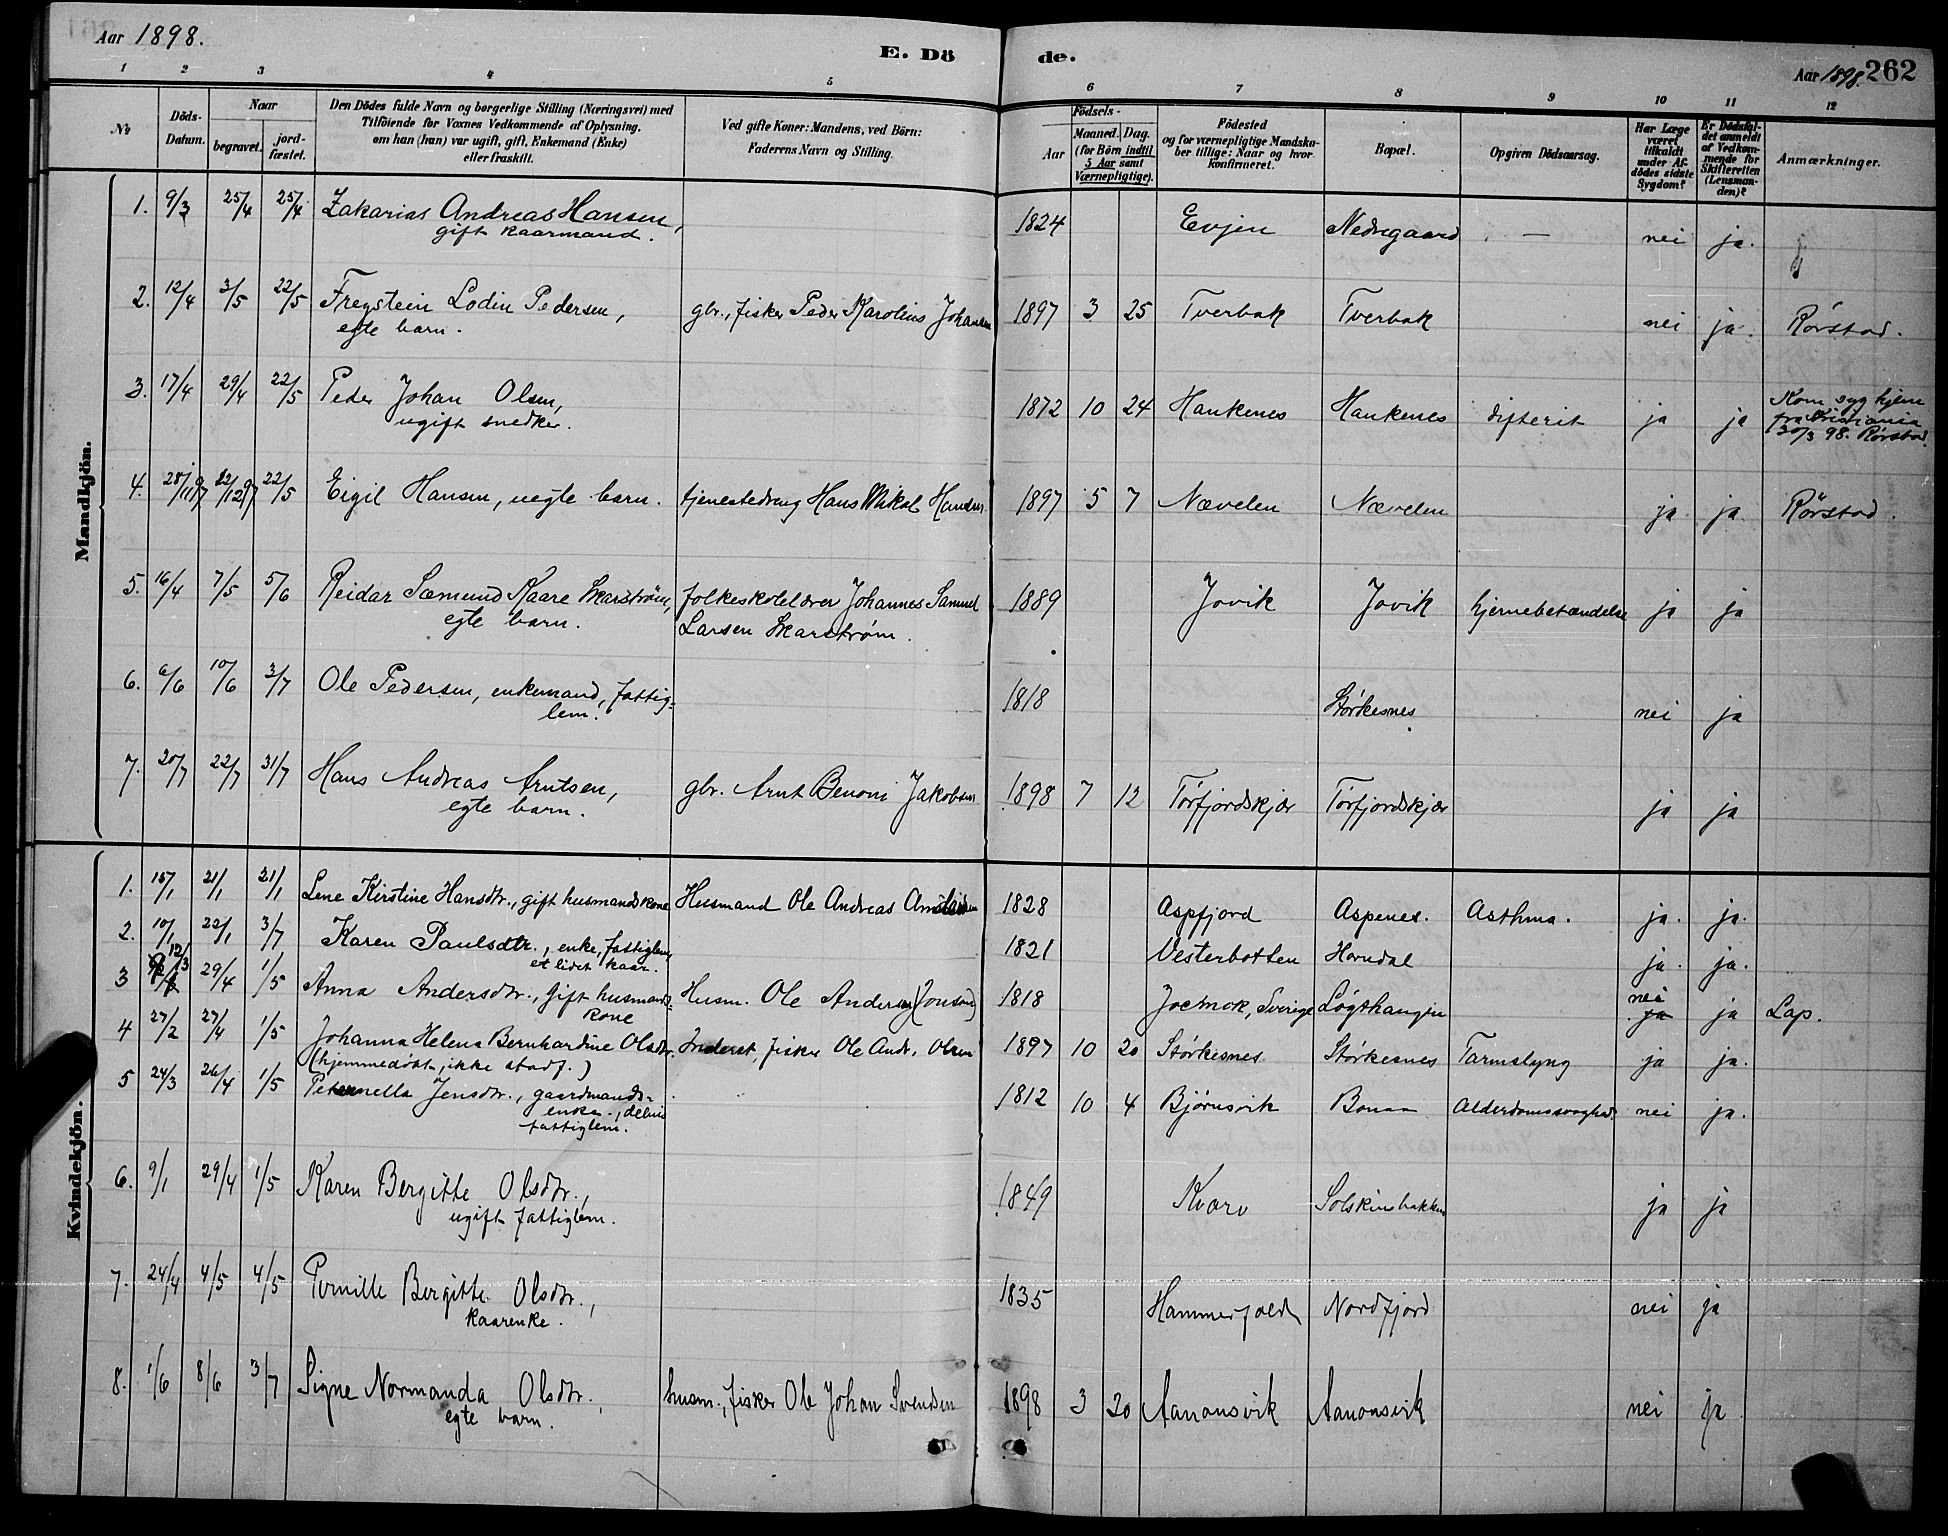 Aar 1898.
E. Dö de.
Aar 1898. 262
1 2 3 4 5 6 7 8 9 10 11 12
No
Döds-Datum.
Naar
begravet.
jord-fæstet.
Den Dödes fulde Navn og borgerlige Stilling (Næringsvei) med
Tilföiende for Voxnes Vedkommende af Oplysning,
om han (hun) var ugift, gift, Enkemand (Enke)
eller fraskilt.
Ved gifte Koner: Mandens, ved Börn:
Faderens Navn og Stilling.
Födsels-
Aar
Maaned. Dag.
(for Börn indtil
5 Aar samt
Værnepligtige).
Födested
og for værnepligtige Mandska-
ber tillige: Naar og hvor
konfirmeret.
Bopæl.
Opgiven Dödsaarsag.
Har Læge
været
tilkaldt
under Af-
dödes sidste
Sygdom?
Er Dödsfal-
det anmeldt
af Vedkom-
mende for
Skifteretten
(Lensman-
den)?
Anmærkninger.
Mandkjön.
1. 9/3 25/4 25/4 Zakarias Andreas Hansen, 1824 Evjen Nedregaard — nei ja.
gift kaarmand.
2. 12/4 3/5 22/5 Freystein Lodin Pedersen, gbr., fisker Peder Karolius Johansen 1897 3 25 Tverbak Tverbak nei ja. Rørstad.
egte barn.
3. 17/4 29/4 22/5 Peder Johan Olsen, 1872 10 24 Haukenes Haukenes difterit ja ja Kom syg hjem
ugift snedker. fra Kristiania
30/3 98. Rørstad.
4. 28/11 97 22/12 97 22/5 Eigil Hansen, uegte barn. tjenestedreng Hans Mikal Hansen 1897 5 7 Nævelen Nævelen ja ja. Rørstad.
5. 16/4 7/5 5/6 Reidar Sæmund Kaare Skarstrøm, folkeskolelærer Johannes Samuel 1889 Jovik Jovik hjernebetændelse ja ja
egte barn. Larsen Skarstrøm.
6. 6/6 10/6 3/7 Ole Pedersen, enkemand, fattig- 1818 Størkesnes nei ja
lem.
7. 20/7 22/7 31/7 Hans Andreas Arntsen, gbr. Arnt Benoni Jakobsen 1898 7 12 Tørfjordskjær Tørfjordskjær ja ja
egte barn.
Kvindekjön.
1. 15/1 21/1 21/1 Lene Kirstine Hansdtr., gift husmandskone Husmand Ole Andreas 1828 Aspfjord Aspenes. Asthma. ja. ja.
2. 10/1 22/1 3/7 Karen Paulsdtr., enke, fattiglem, 1821 Vesterbotten Horndal ja. ja.
et lidet kaar.
3 12/3 29/4 1/5 Anna Andersdtr., Gift husmands- Husm. Ole Andersen (Jonson) 1818 Jockmok, Sverige Løgthaugen nei ja ja Lap.
kone
4 27/2 27/4 1/5 Johanna Helena Bernhardine Olsdtr. Inderst, fisker Ole Andr. Olsen 1897 10 20 Størkesnes Størkesnes Tarmslyng ja ja.
(hjemmedøbt, ikke stadf.)
5 24/3 26/4 1/5 Peternella Jensdtr., gaardmands- 1812 10 4 Bjørnsvik Bonaa Alderdomssvaghed nei ja.
enke., delvis
fattiglem.
6. 9/1 29/4 1/5 Karen Bergitte Olsdtr., 1849 Kvarv Solskinsbakken ja ja
ugift fattiglem.
7. 24/4 4/5 4/5 Pernille Bergitte Olsdtr., 1835 Hammerfald Nordfjord nei ja
kaarenke.
8. 1/6 8/6 3/7 Signe Normanda Olsdtr., husm., fisker Ole Johan Svendsen 1898 3 20 Aanonsvik Aanonsvik nei ja
egte barn.